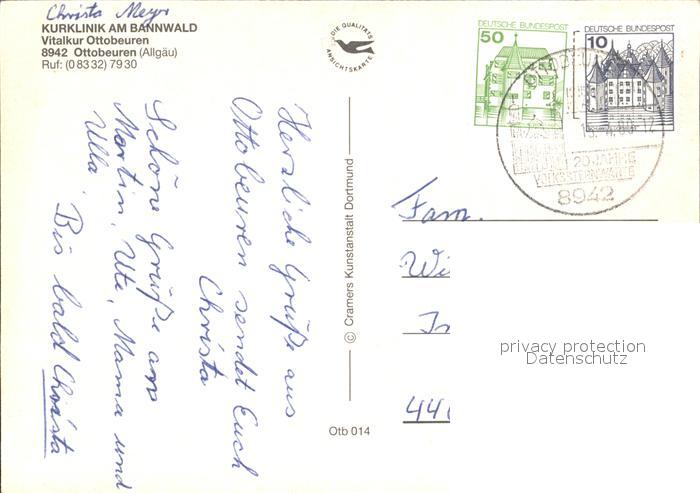 Christa Meyr
KURKLINIK AM BANNWALD
Vitalkur Ottobeuren
8942 Ottobeuren (Allgäu)
Ruf: (0 83 32) 79 30
DIE QUALITÄTS
ANSICHTSKARTE
DEUTSCHE BUNDESPOST
50
DEUTSCHE BUNDESPOST
10
20 JAHRE
8942
Herzliche Grüße aus
Ottobeuren sendet Euch
Christa
Schöne Grüße an
Martin, Ute, Mama und
Ulla.
Bis bald Christa
© Cramers Kunstanstalt Dortmund
Otb 014
Fam.
Wi
44
privacy protection
Datenschutz